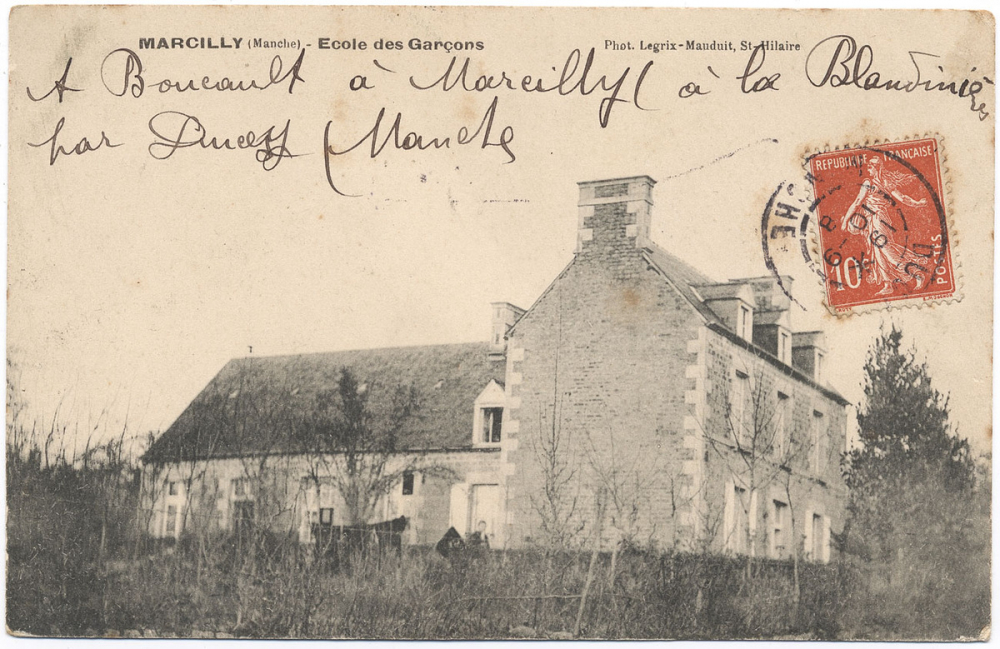 MARCILLY (Manche) - Ecole des Garçons
Phot. Legrix-Mauduit, St-Hilaire
A Boucault à Marcilly (à la Blandinière
par Ducey (Manche
REPUBLIQUE FRANÇAISE
10c
POSTES